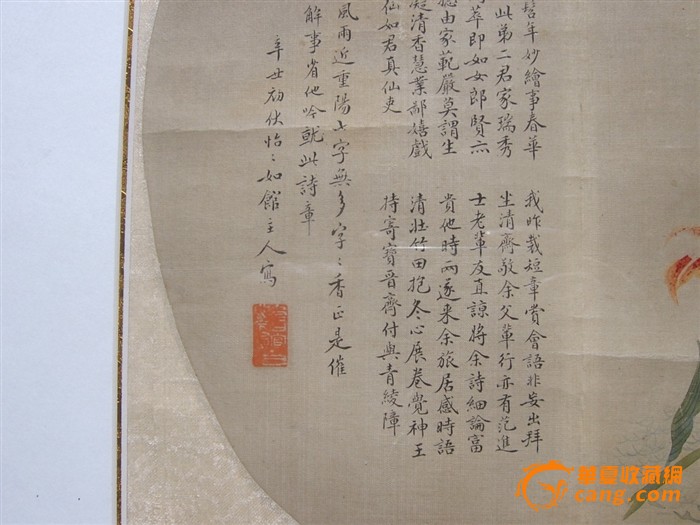 年妙繪事春華
此弟二君家瑞秀
萃即如女郎賢亦
由家範嚴莫謂生
凝清香慧業鄙嬉戲
仙如君真仙吏
我昨栽短章賞會語非妄出拜
坐清齋敬余父輩行亦有范進
士老輩友直諒將余詩細論富
貴他時兩逐來余旅居感時語
清壯竹田抱冬心展卷覺神王
持寄寶晉齋付與青綾障
風雨近重陽七字無多字〻香正是催
解事省他吟就此詩章
辛丑初伏怡〻如館主人寫
華夏收藏网
cang.com